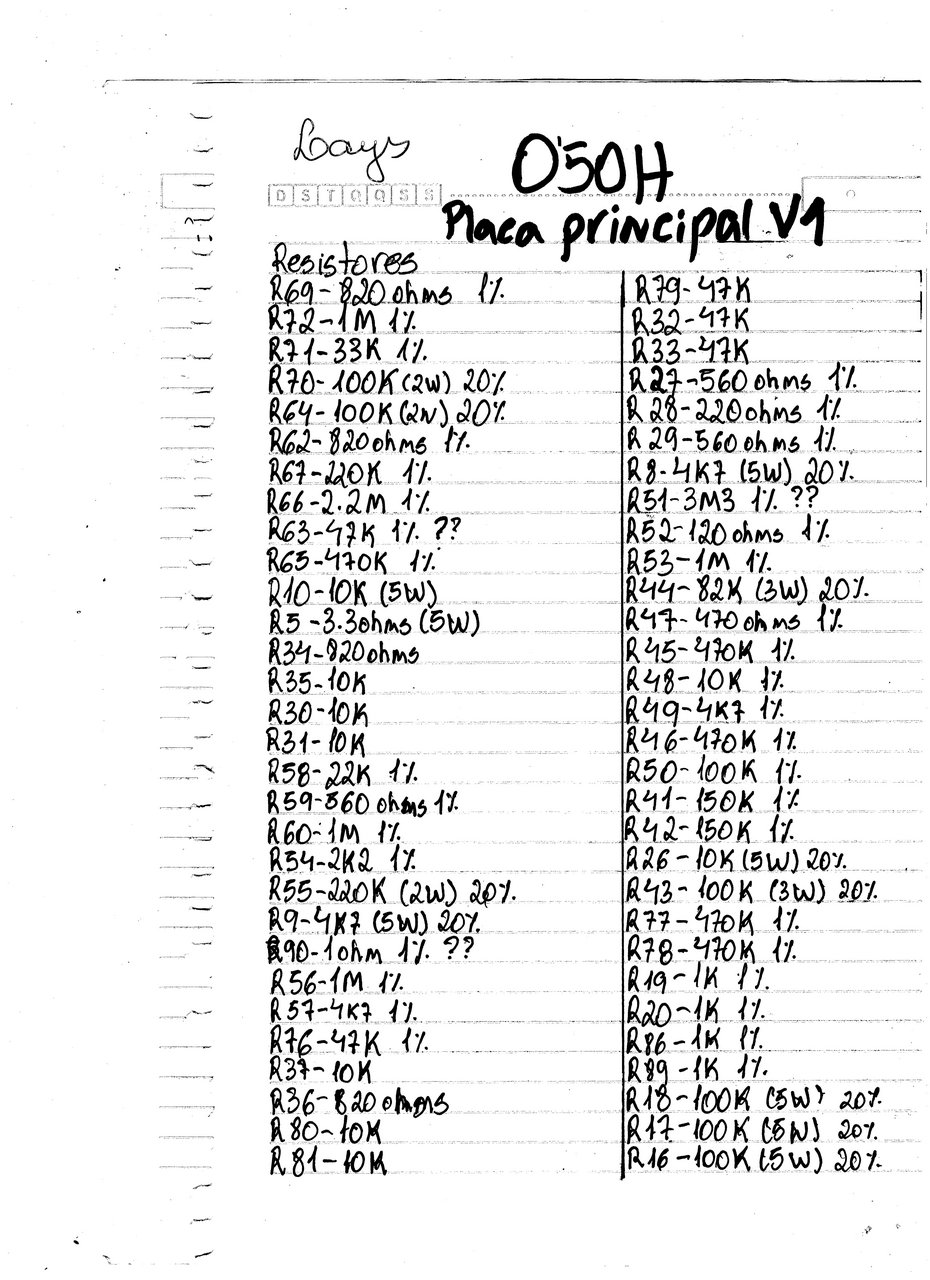 Lays
O50H
D S T Q Q S S
Placa principal V1
Resistores
R69-820 ohms 1%
R72-1M 1%
R71-33K 1%
R70-100K (2W) 20%
R64-100K (2W) 20%
R62-820 ohms 1%
R67-220K 1%
R66-2.2M 1%
R63-47K 1% ??
R65-470K 1%
R10-10K (5W)
R5-3.3ohms (5W)
R34-820ohms
R35-10K
R30-10K
R31-10K
R58-22K 1%
R59-560 ohms 1%
R60-1M 1%
R54-2K2 1%
R55-220K (2W) 20%
R9-4K7 (5W) 20%
R90-1ohm 1% ??
R56-1M 1%
R57-4K7 1%
R76-47K 1%
R37-10K
R36-820 ohms
R80-10K
R81-10K
R79-47K
R32-47K
R33-47K
R27-560 ohms 1%
R28-220 ohms 1%
R29-560 ohms 1%
R8-4K7 (5W) 20%
R51-3M3 1% ??
R52-120 ohms 1%
R53-1M 1%
R44-82K (3W) 20%
R47-470 ohms 1%
R45-470K 1%
R48-10K 1%
R49-4K7 1%
R46-470K 1%
R50-100K 1%
R41-150K 1%
R42-150K 1%
R26-10K (5W) 20%
R43-100K (3W) 20%
R77-470K 1%
R78-470K 1%
R19-1K 1%
R20-1K 1%
R86-1K 1%
R89-1K 1%
R18-100K (5W) 20%
R17-100K (5W) 20%
R16-100K (5W) 20%